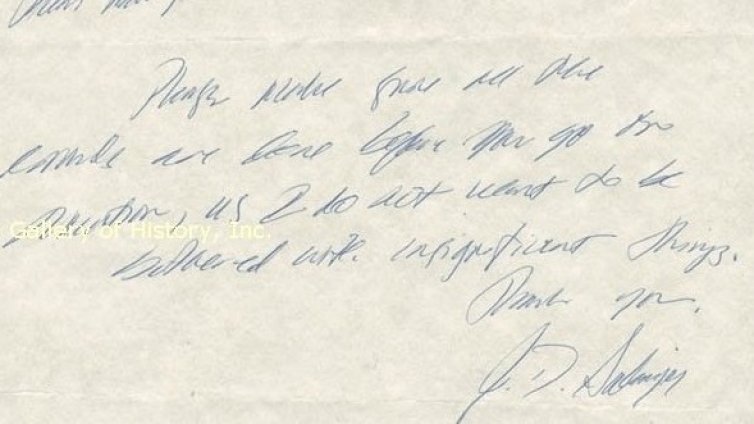 Dear Mary,
Please make sure all the
errands are done before you go on
vacation, as I do not want to be
Gallery of History, Inc.
bothered with insignificant things.
Thank you,
J. D. Salinger